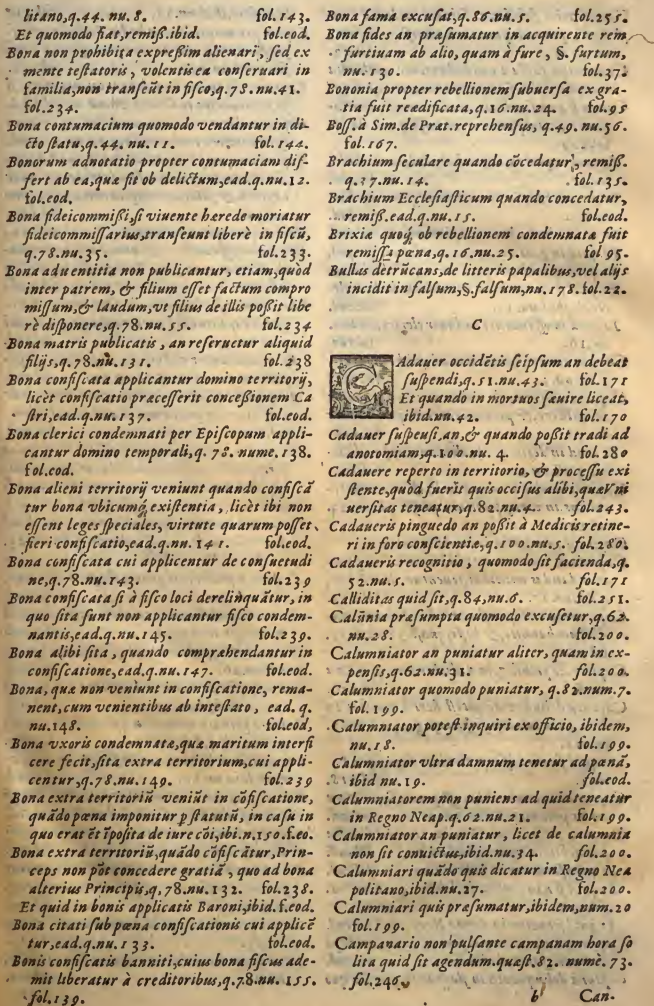 litano,q.44. nu.8. fol.143.
Et quomodo fiat,remiß.ibid. fol.eod.
Bona non prohibita expreßim alienari, sed ex
mente testatoris, volentis ea conseruari in
familia,non transeūt in fisco,q.78.nu.41.
fol.234.
Bona contumacium quomodo vendantur in di-
cto statu,q.44. nu.11. fol.144.
Bonorum adnotatio propter contumaciam dif-
fert ab ea,quæ fit ob delictum,ead.q.nu.12.
fol.eod.
Bona fideicommißi,si viuente hærede moriatur
fideicommissarius,transeunt liberè in fiscū,
q.78.nu.35. fol.233.
Bona aduentitia non publicantur, etiam,quòd
inter patrem, & filium esset factum compro
missum,& laudum,vt filius de illis poßit libe
rè disponere,q.78.nu.55. fol.234
Bona matris publicatis, an referuetur aliquid
filijs,q.78.nu.131. fol.238
Bona confiscata applicantur domino territorij,
licèt confiscatio præcesserit conceßionem Ca
stri,ead.q.nu.137. fol.eod.
Bona clerici condemnati per Episcopum appli-
cantur domino temporali,q. 78. nume. 138.
fol.eod.
Bona alieni territorij veniunt quando confiscā
tur bona vbicumq́; existentia, licèt ibi non
essent leges speciales, virtute quarum posset
fieri confiscatio,ead.q.nu. 141. fol.eod.
Bona confiscata cui applicentur de consuetudi
ne,q.78.nu.143. fol.239
Bona confiscata si à fisco loci derelinquātur, in
quo sita sunt non applicantur fisco condem-
nantis,ead.q.nu.145. fol.239.
Bona alibi sita, quando compræhendantur in
confiscatione,ead.q.nu.147. fol.eod.
Bona, quæ non veniunt in confiscatione, rema-
nent,cum venientibus ab intestato, ead. q.
nu.148. fol.eod,
Bona vxoris condemnatæ,quæ maritum interfi
cere fecit,sita extra territorium,cui appli-
centur,q.78.nu.149. fol.239
Bona extra territoriū veniūt in cōfiscatione,
quādo pœna imponitur p statutū, in casu in
quo erat ēt īposita de iure cōi,ibi.n.150.f.eo.
Bona extra territoriū,quādo cōfiscātur,Prin-
ceps non pōt concedere gratiā, quo ad bona
alterius Principis,q,78.nu.132. fol.238.
Et quid in bonis applicatis Baroni,ibid.f.eod.
Bona citati sub pœna confiscationis cui applicē
tur,ead.q.nu.133. fol.eod.
Bonis confiscatis banniti,cuius bona fiscus ade-
mit liberatur à creditoribus,q.78.nu. 155.
fol.139.
Bona fama excusat,q.86.nu.5. fol.255.
Bona fides an præsumatur in acquirente rem
furtiuam ab alio, quam à fure, §. furtum,
nu.130. fol.37.
Bononia propter rebellionem subuersa ex gra-
tia fuit reædificata,q.16.nu.24. fol.95
Boss. à Sim.de Præt.reprehensus, q.49. nu.56.
fol.167.
Brachium seculare quando cōcedatur, remiß.
q.37.nu.14. fol.135.
Brachium Ecclesiasticum quando concedatur,
remiß.ead.q.nu.15. fol.eod.
Brixia quoq; ob rebellionem condemnata fuit
remissa pœna,q.16.nu.25. fol 95.
Bullas detrūcans,de litteris papalibus,vel alijs
incidit in falsum,§.falsum,nu.178.fol.22.
C
CAdauer occidētis seipsum an debeat
suspendi,q.51.nu.43. fol.171
Et quando in mortuos sæuire liceat,
ibid.nu.42. fol.170
Cadauer suspensi,an,& quando poßit tradi ad
anotomiam,q.100.nu. 4. fol.280
Cadauere reperto in territorio, & processu exi
stente,quòd fuerit quis occisus alibi,quæ Vni
uersitas teneatur,q.82.nu.4. fol.243.
Cadaueris pinguedo an poßit à Medicis retine-
ri in foro conscientiæ,q.100.nu.5. fol.280.
Cadaueris recognitio, quomodo sit facienda,q.
52.nu.5. fol.171
Calliditas quid sit,q.84,nu.6. fol.251.
Calūnia præsumpta quomodo excusetur,q.62.
nu.28. fol.200.
Calumniator an puniatur aliter, quam in ex-
pensis,q.62.nu.31. fol.200.
Calumniator quomodo puniatur, q.82.num.7.
fol.199.
Calumniator potest inquiri ex officio, ibidem,
nu.18. fol.199.
Calumniator vltra damnum tenetur ad pœnā,
ibid nu.19. fol.eod.
Calumniatorem non puniens ad quid teneatur
in Regno Neap.q.62.nu.21. fol.199.
Calumniator an puniatur, licet de calumnia
non sit conuictus,ibid.nu.34. fol.200.
Calumniari quādo quis dicatur in Regno Nea
politano,ibid.nu.27. fol.200.
Calumniari quis præsumatur,ibidem,num.20
fol.199.
Campanario non pulsante campanam hora so
lita quid sit agendum.quæst.82. nume. 73.
fol.246.
b Can-